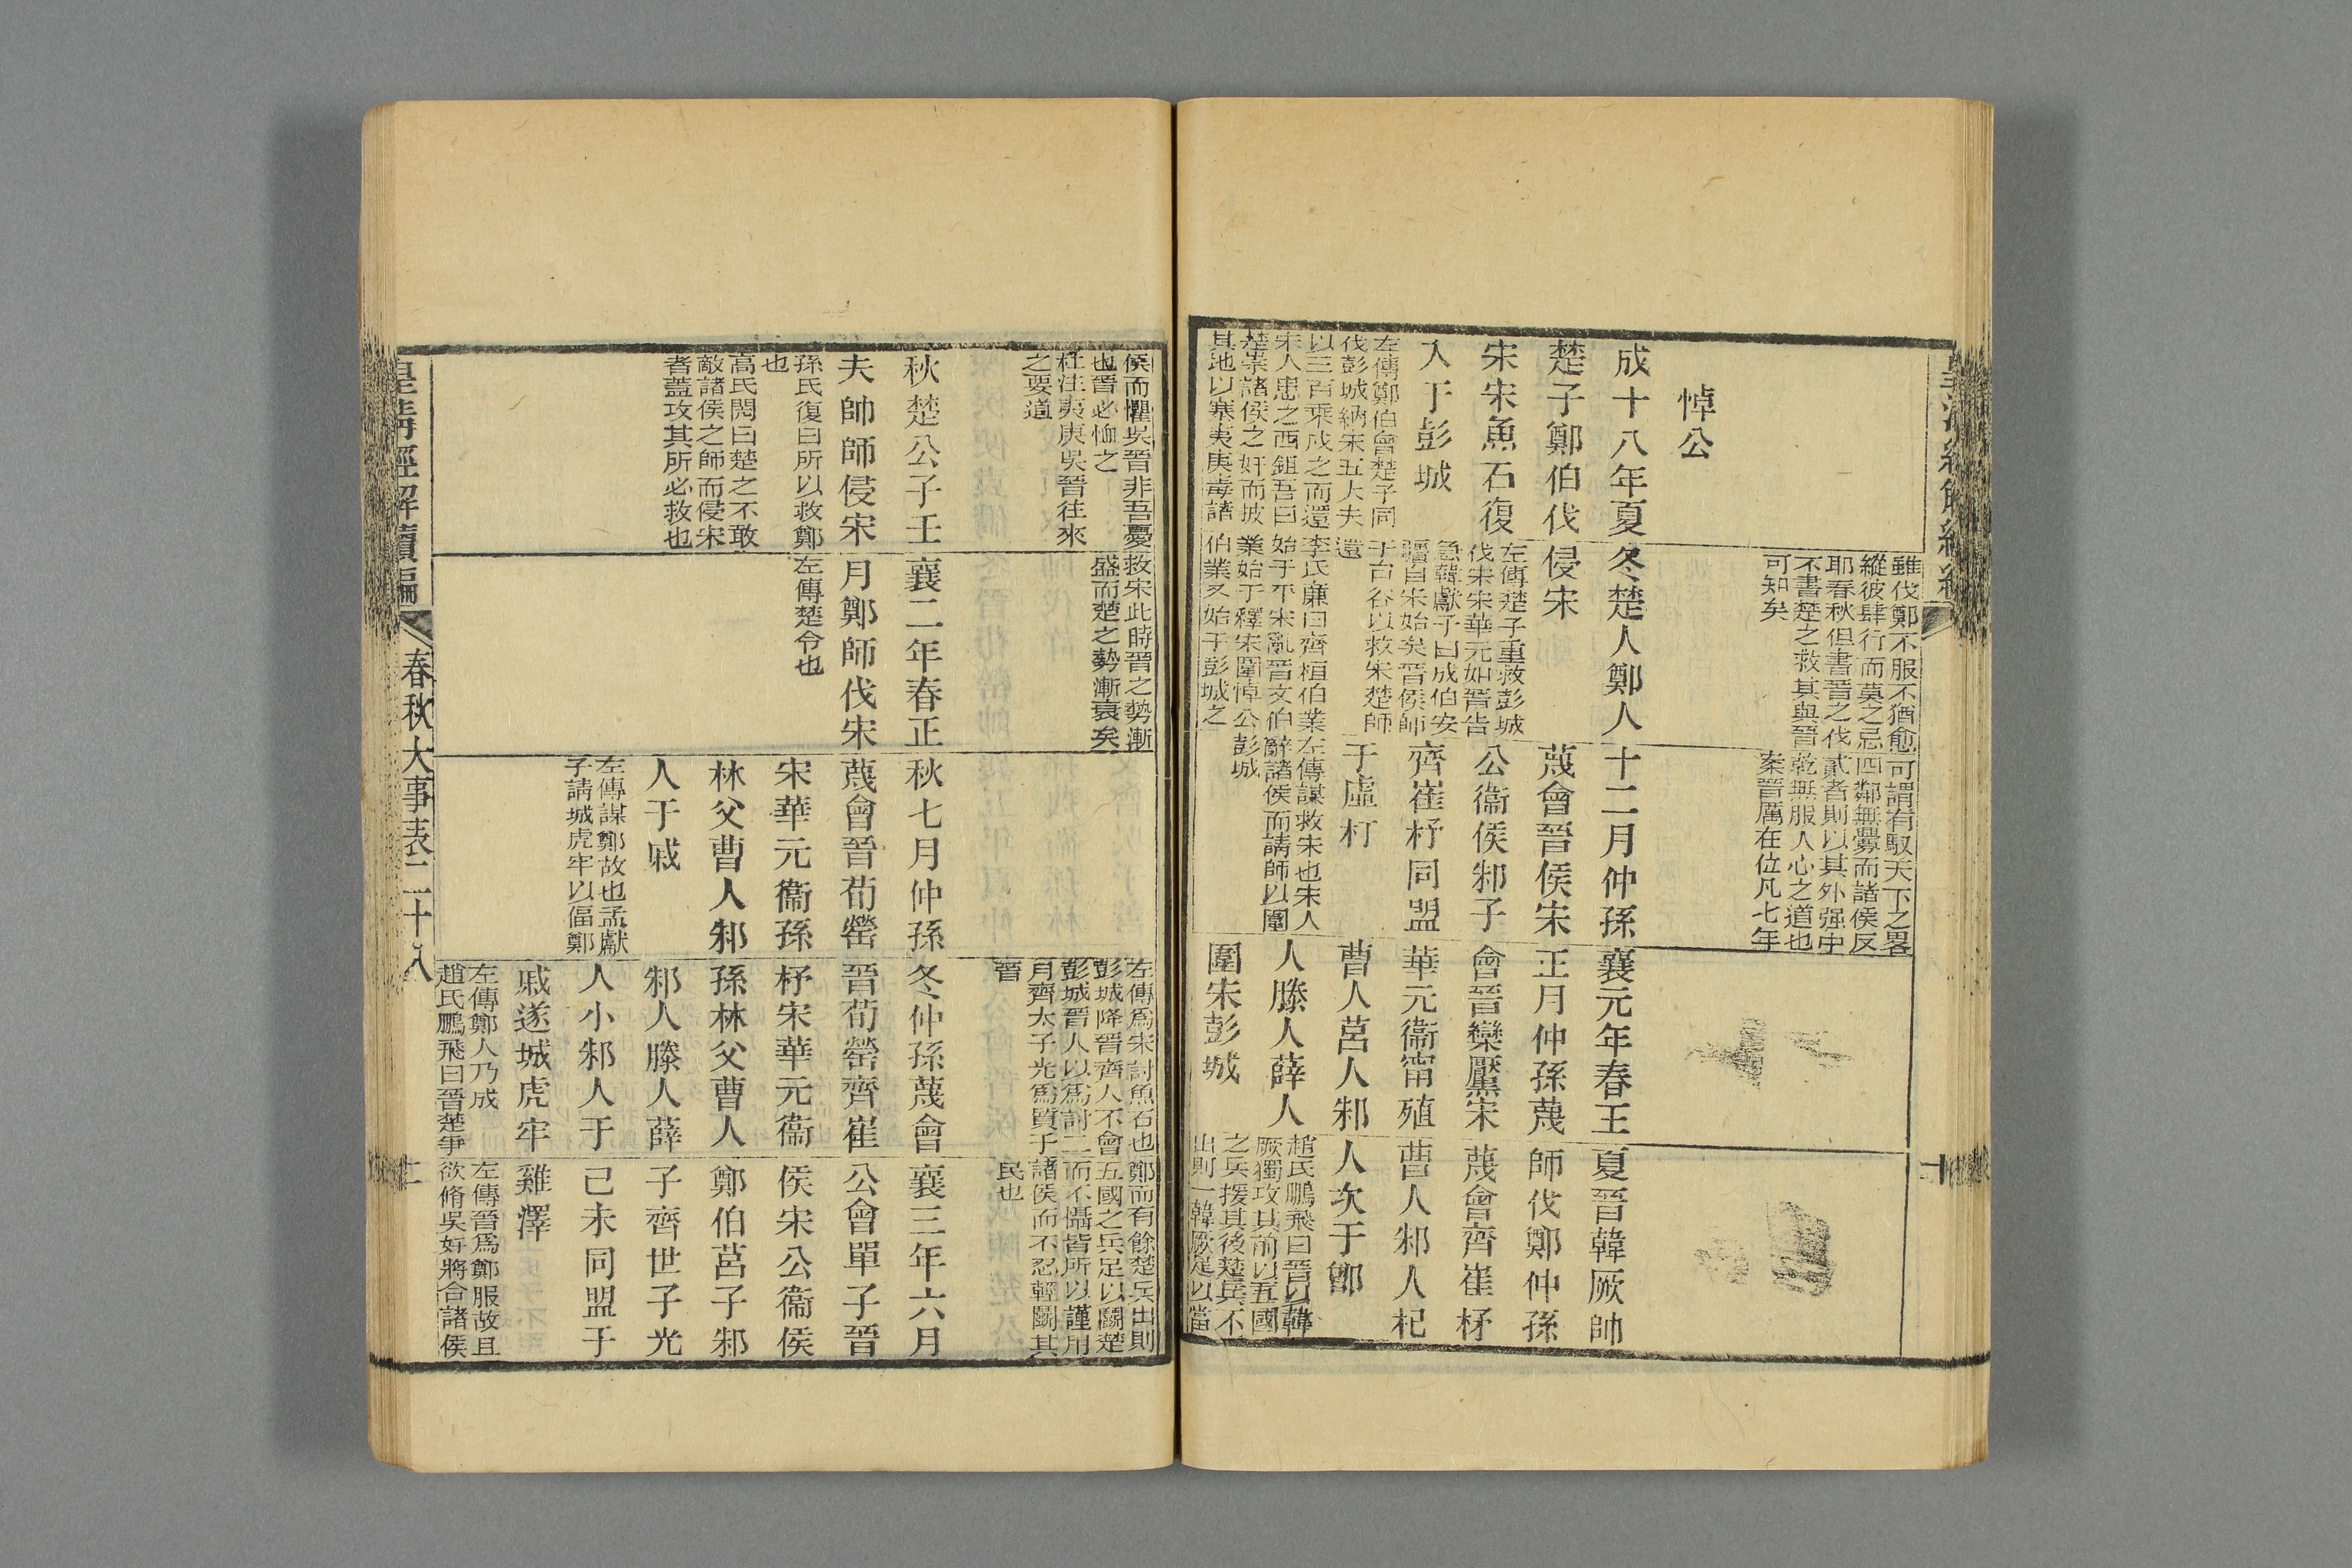 皇清經解續編
十
悼公
成十八年夏
楚子鄭伯伐
宋宋魚石復
入于彭城
左傳鄭伯會楚子同
伐彭城納宋五大夫
以三百乘戍之而還
宋人患之西鉏吾曰
楚崇諸侯之奸而披
其地以塞夷庚毒諸
雖伐鄭不服不猶愈
縱彼肆行而莫之忌
耶春秋但書晉之伐
不書楚之救其與晉
可知矣
冬楚人鄭人
侵宋
左傳楚子重救彭城
伐宋宋華元如晉告
急韓獻子曰成伯安
疆自宋始矣晉侯師
于台谷以救宋楚師
還
李氏廉曰齊桓伯業
始于平宋亂晉文伯
業始于釋宋圍悼公
伯業亦始于彭城之
可謂有馭天下之畧
四鄰無釁而諸侯反
貳者則以其外强中
乾無服人心之道也
案晉厲在位凡七年
十二月仲孫
蔑會晉侯宋
公衞侯邾子
齊崔杼同盟
于虛朾
左傳謀救宋也宋人
辭諸侯而請師以圍
彭城
襄元年春王
正月仲孫蔑
會晉欒黶宋
華元衞甯殖
曹人莒人邾
人滕人薛人
圍宋彭城
夏晉韓厥帥
師伐鄭仲孫
蔑會齊崔杼
曹人邾人杞
人次于鄫
趙氏鵬飛曰晉以韓
厥獨攻其前以五國
之兵援其後楚兵不
出則一韓厥足以當
侯而懼吳晉非吾憂
也晉必恤之
杜注夷庚吳晉往來
之要道
秋楚公子壬
夫帥師侵宋
孫氏復曰所以救鄭
也
高氏閌曰楚之不敢
敵諸侯之師而侵宋
者蓋攻其所必救也
救宋此時晉之勢漸
盛而楚之勢漸衰矣
襄二年春正
月鄭師伐宋
左傳楚令也
秋七月仲孫
蔑會晉荀罃
宋華元衞孫
林父曹人邾
人于戚
左傳謀鄭故也孟獻
子請城虎牢以偪鄭
左傳爲宋討魚石也
彭城降晉齊人不會
彭城晉人以爲討二
月齊太子光爲質于
晉
冬仲孫蔑會
晉荀罃齊崔
杼宋華元衞
孫林父曹人
邾人滕人薛
人小邾人于
戚遂城虎牢
左傳鄭人乃成
趙氏鵬飛曰晉楚爭
鄭而有餘楚兵出則
五國之兵足以鬬楚
而不懾皆所以謹用
諸侯而不忍輕鬬其
民也
襄三年六月
公會單子晉
侯宋公衞侯
鄭伯莒子邾
子齊世子光
己未同盟于
雞澤
左傳晉爲鄭服故且
欲脩吳好將合諸侯
皇清經解續編
春秋大事表二十八
十一